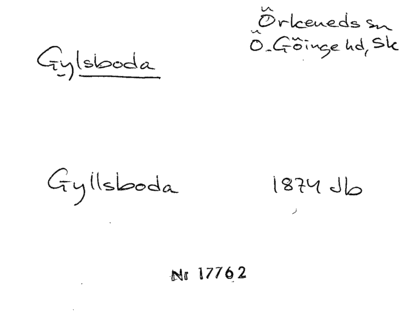 Örkeneds sn
Gylsboda Ö. Göinge hd, Sk
Gyllsboda 1874 Jb
Nr 17762